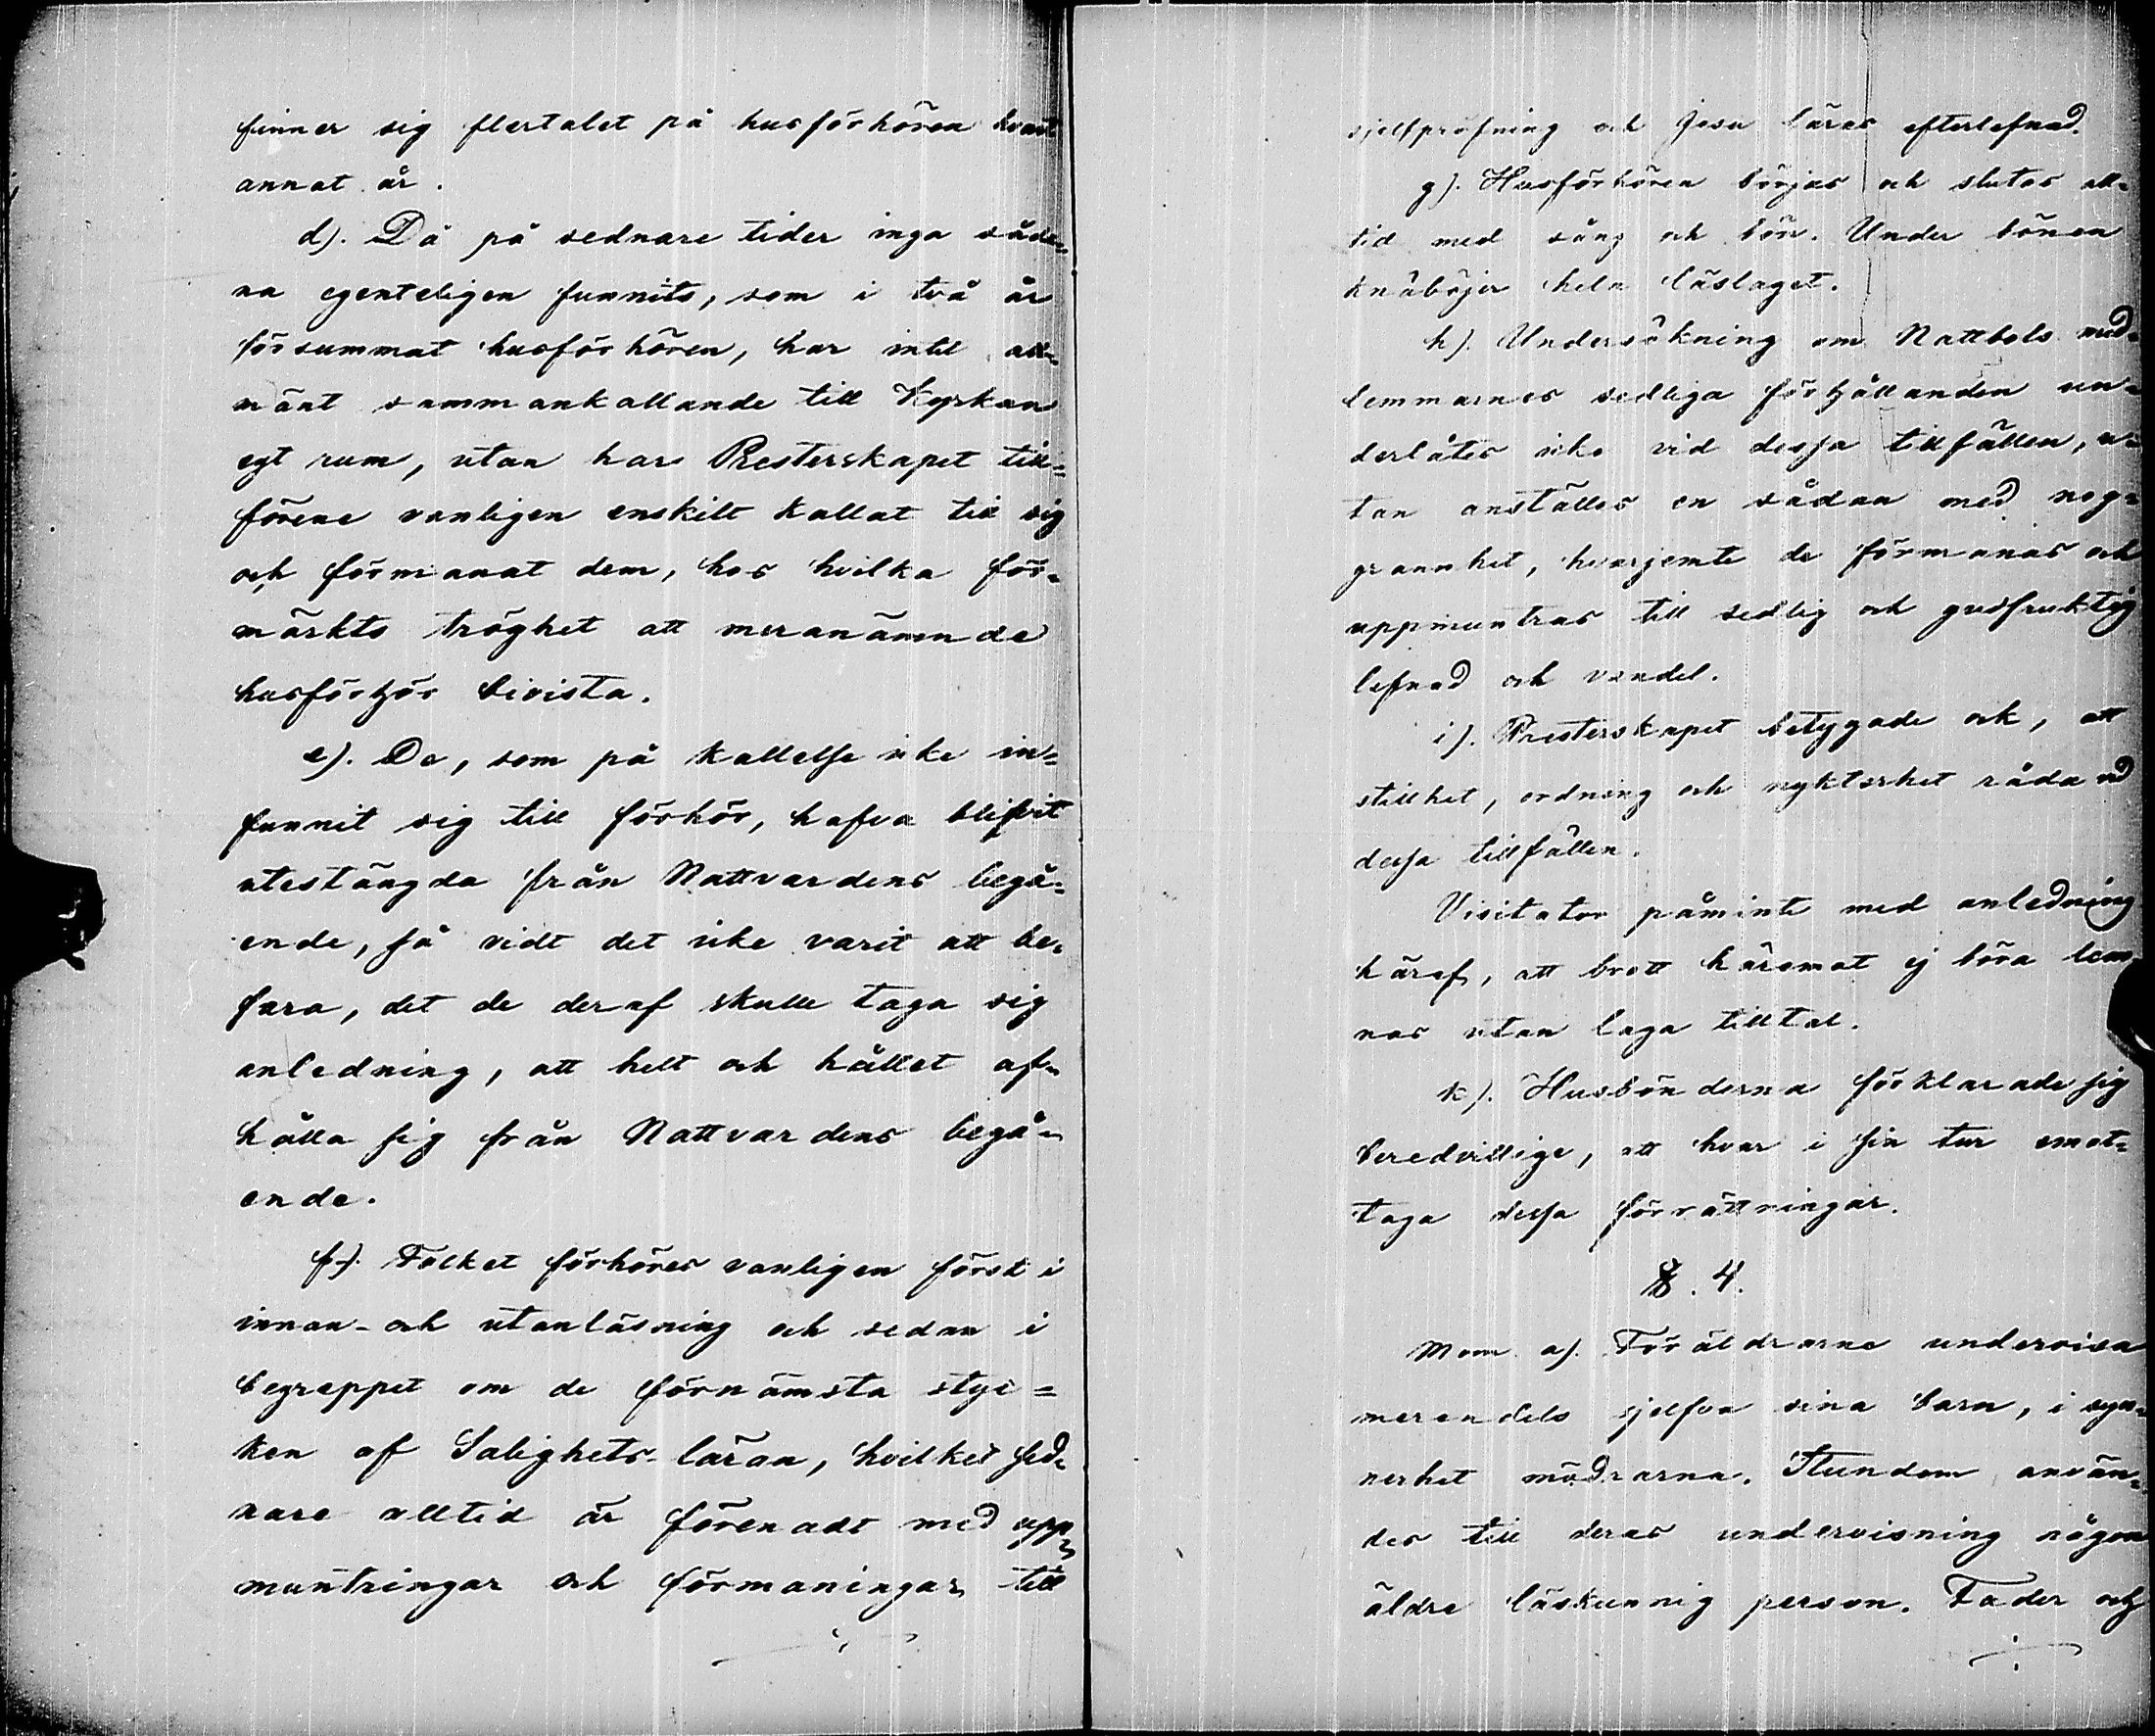 finner sig flertalet på husförhören hvart
annat år.
d). Då på sednare tider inga såda-
na egenteligen funnits, som i två år
försummat husförhören, har intet all-
mänt sammankallande till Kyrkan
egt rum, utan har Presterskapet till-
förene vanligen enskilt kallat till sig
och förmanat dem, hos hvilka för-
märkts tröghet att meranämnde
husförhör bivista.
e). De, som på kallelse icke in-
funnit sig till förhör, hafva blifvit
utestängda från Nattvardens begå-
ende, så vidt det icke varit att be-
fara, det de deraf skulle taga sig
anledning, att helt och hållet af-
hålla sig från Nattvardens begå-
ende.
f). Folket förhöres vanligen först i
innan- och utanläsning och sedan i
begreppet om de förnämsta styc-
ken af Salighets-läran, hvilket sed-
nare alltid är förenadt med upp-
muntringar och förmaningar till
sjelfpröfning och Jesu läras efterlefnad.
g). Husförhören börjas och slutas all-
tid med sång och bön. Under bönen
knäböjer hela läslaget.
h). Undersökning om Nattbols med-
lemmarnes sedliga förhållanden un-
derlåtes icke vid dessa tillfällen, u-
tan anställes en sådan med nog-
grannhet, hvarjemte de förmanas och
uppmuntras till sedlig och gudfruktig
lefnad och vandel.
i). Presterskapet betygade ock, att
stillhet, ordning och nykterhet råda vid
dessa tillfällen.
Visitator påminte med anledning
häraf, att brott häremot ej böra lem-
nas utan laga tilltal.
k). Husbönderna förklarade sig
beredvillige, att hvar i sin tur emot-
taga dessa förrättningar.
§. 4.
Mom. a). Föräldrarne undervisa
merendels sjelfva sina barn, i syn-
nerhet mödrarna. Stundom använ-
des till deras undervisning någon
äldre läskunnig person. Fader och